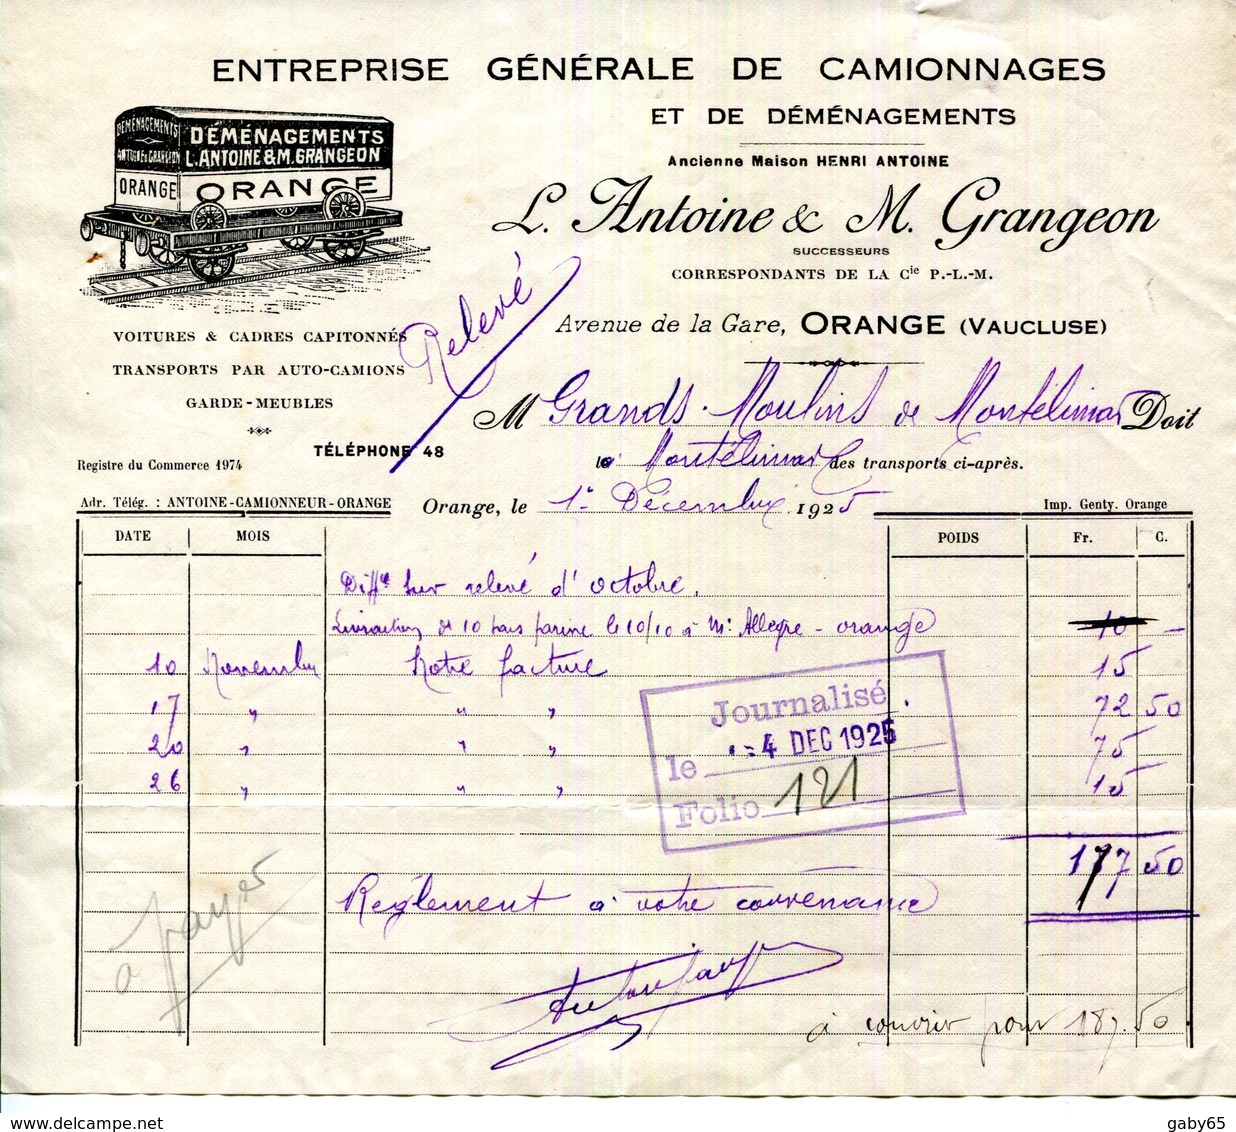 ENTREPRISE GÉNÉRALE DE CAMIONNAGES
ET DE DÉMÉNAGEMENTS
Ancienne Maison HENRI ANTOINE
L. Antoine & M. Grangeon
SUCCESSEURS
CORRESPONDANTS DE LA Cie P.-L.-M.
Avenue de la Gare, ORANGE (VAUCLUSE)
DÉMÉNAGEMENTS
ANTOINE & GRANGEON
ORANGE
DÉMÉNAGEMENTS
L. ANTOINE & M. GRANGEON
ORANGE
VOITURES & CADRES CAPITONNÉS
TRANSPORTS PAR AUTO-CAMIONS
GARDE-MEUBLES
TÉLÉPHONE 48
Registre du Commerce 1974
Adr. Télég. : ANTOINE-CAMIONNEUR-ORANGE
Relevé
M Grands Moulins de Montélimar Doit
à Montélimar les transports ci-après.
Orange, le 1er Décembre 1925
Imp. Genty. Orange
DATE MOIS POIDS Fr. C.
Diffce sur relevé d'octobre.
Livraison de 10 bars farine le 10/10 à Mr Allegre - orange 10 -
10 Novembre Notre facture 15
17 " " " 72 50
20 " " " 75
26 " " " 15
177 50
Journalisé
le - 4 DEC 1925
Folio 121
Règlement à votre convenance
à payer
à couvrir pour 187.50
gaby65
www.delcampe.net